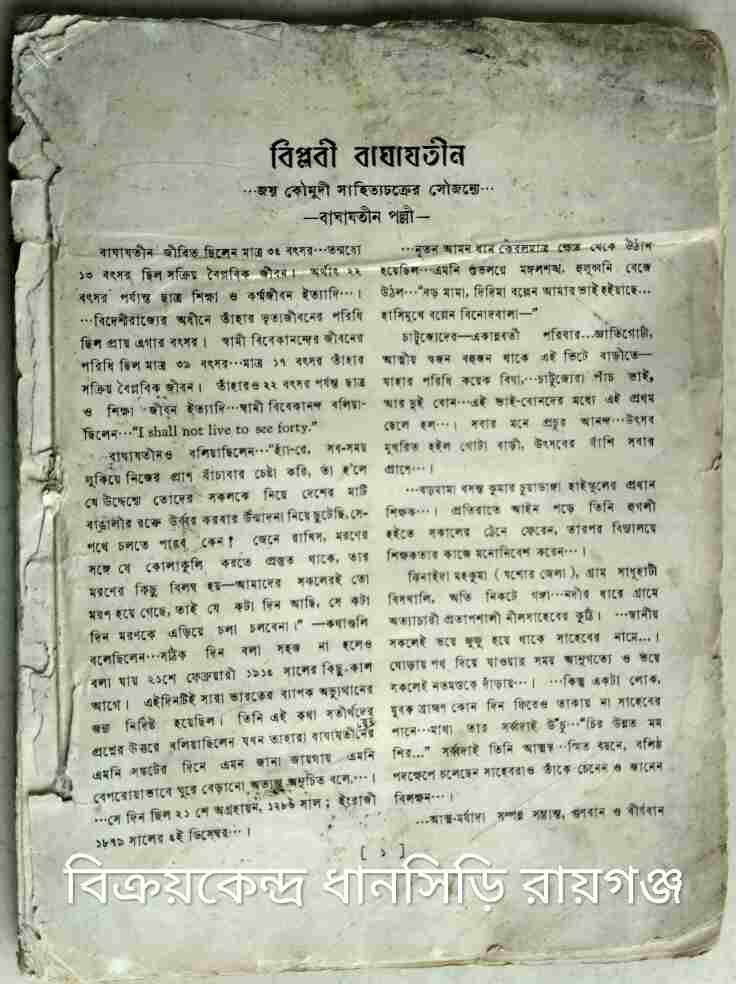 বিপ্লবী বাঘাযতীন
···জয় কৌমুদী সাহিত্যচক্রের সৌজন্যে···
—বাঘাযতীন পল্লী—
বাঘাযতীন জীবিত ছিলেন মাত্র ৩৫ বৎসর···তন্মধ্যে
১৩ বৎসর ছিল সক্রিয় বৈপ্লবিক জীবন। অর্থাৎ ২২
বৎসর পর্যান্ত ছাত্র শিক্ষা ও কর্ম্মজীবন ইত্যাদি···।
···বিদেশীরাজ্যের অধীনে তাঁহার ভৃত্যজীবনের পরিধি
ছিল প্রায় এগার বৎসর। স্বামী বিবেকানন্দের জীবনের
পরিধি ছিল মাত্র ৩৯ বৎসর···মাত্র ১৭ বৎসর তাঁহার
সক্রিয় বৈপ্লবিক জীবন। তাঁহারও ২২ বৎসর পর্যন্ত ছাত্র
ও শিক্ষা জীবন ইত্যাদি···স্বামী বিবেকানন্দ বলিয়া-
ছিলেন···“I shall not live to see forty.”
বাঘাযতীনও বলিয়াছিলেন···“হ্যাঁ-রে, সব-সময়
লুকিয়ে নিজের প্রাণ বাঁচাবার চেষ্টা করি, তা হ'লে
যে উদ্দেশ্যে তোদের সকলকে নিয়ে দেশের মাটি
বাঙালীর রক্তে উর্ব্বর করবার উন্মাদনা নিয়ে ছুটেছি, সে-
পথে চলতে পারব কেন? জেনে রাখিস, মরণের
সঙ্গে যে কোলাকুলি করতে প্রস্তুত থাকে, তার
মরণের কিছু বিলম্ব হয়—আমাদের সকলেরই তো
মরণ হয়ে গেছে, তাই যে কটা দিন আছি, সে কটা
দিন মরণকে এড়িয়ে চলা চলবেনা।” —কথাগুলি
বলেছিলেন···সঠিক দিন বলা সহজ না হলেও
বলা যায় ২১শে ফেব্রুয়ারী ১৯১৫ সালের কিছু-কাল
আগে। এইদিনটিই সারা ভারতের ব্যাপক অভ্যুত্থানের
জন্য নির্দিষ্ট হয়েছিল। তিনি এই কথা সতীর্থদের
প্রশ্নের উত্তরে বলিয়াছিলেন যখন তাহারা বাঘাযতীনের
এমনি সঙ্কটের দিনে এমন জানা জায়গায় এমনি
বেপরোয়াভাবে ঘুরে বেড়ানো অত্যন্ত অনুচিত বলে···।
···সে দিন ছিল ২১ শে অগ্রহায়ন, ১২৮৬ সাল; ইংরাজী
১৮৭৯ সালের ৫ই ডিসেম্বর···।
···নূতন আমন ধান কেবলমাত্র ক্ষেত থেকে উঠান
হয়েছিল···এমনি শুভলগ্নে মঙ্গলশঙ্খ, হুলুধ্বনি বেজে
উঠল···“বড় মামা, দিদিমা বল্লেন আমার ভাই হইয়াছে···
হাসিমুখে বল্লেন বিনোদবালা—”
চাটুজ্যেদের—একান্নবর্তী পরিবার···জ্ঞাতিগোষ্ঠী,
আত্মীয় স্বজন বহুজন থাকে এই ভিটে বাড়ীতে—
যাহার পরিধি কয়েক বিঘা,···চাটুজ্যেরা পাঁচ ভাই,
আর দুই বোন···এই ভাই-বোনদের মধ্যে এই প্রথম
ছেলে হল···। সবার মনে প্রচুর আনন্দ···উৎসব
মুখরিত হইল গোটা বাড়ী, উৎসবের বাঁশি সবার
প্রাণে···।
···বড়মামা বসন্ত কুমার চুয়াডাঙ্গা হাইস্কুলের প্রধান
শিক্ষক···। প্রতিরাতে আইন পড়ে তিনি হুগলী
হইতে সকালের ট্রেনে ফেরেন, তারপর বিদ্যালয়ে
শিক্ষকতার কাজে মনোনিবেশ করেন···।
ঝিনাইদা মহকুমা (যশোর জেলা), গ্রাম সাধুহাটী
বিসখালি, অতি নিকটে গঙ্গা···নদীর ধারে গ্রামে
অত্যাচারী প্রতাপশালী নীলসাহেবের কুঠি। ···স্থানীয়
সকলেই ভয়ে জুজু হয়ে থাকে সাহেবের নামে···।
ঘোড়ায় পথ দিয়ে যাওয়ার সময় আনুগত্যে ও ভয়ে
সকলেই নতমস্তকে দাঁড়ায়···। ···কিন্তু একটা লোক,
যুবক ব্রাহ্মণ কোন দিন ফিরেও তাকায় না সাহেবের
পানে···মাথা তার সর্ব্বদাই উঁচু···“চির উন্নত মম
শির...” সর্ব্বদাই তিনি আত্মস্থ···স্মিত বয়নে, বলিষ্ঠ
পদক্ষেপে চলেছেন সাহেবরাও তাঁকে চেনেন ও জানেন
বিলক্ষন···।
···আত্ম-মর্যাদা সম্পন্ন সম্ভ্রান্ত, গুণবান ও বীর্যবান
[ ১ ]
বিক্রয়কেন্দ্র ধানসিড়ি রায়গঞ্জ